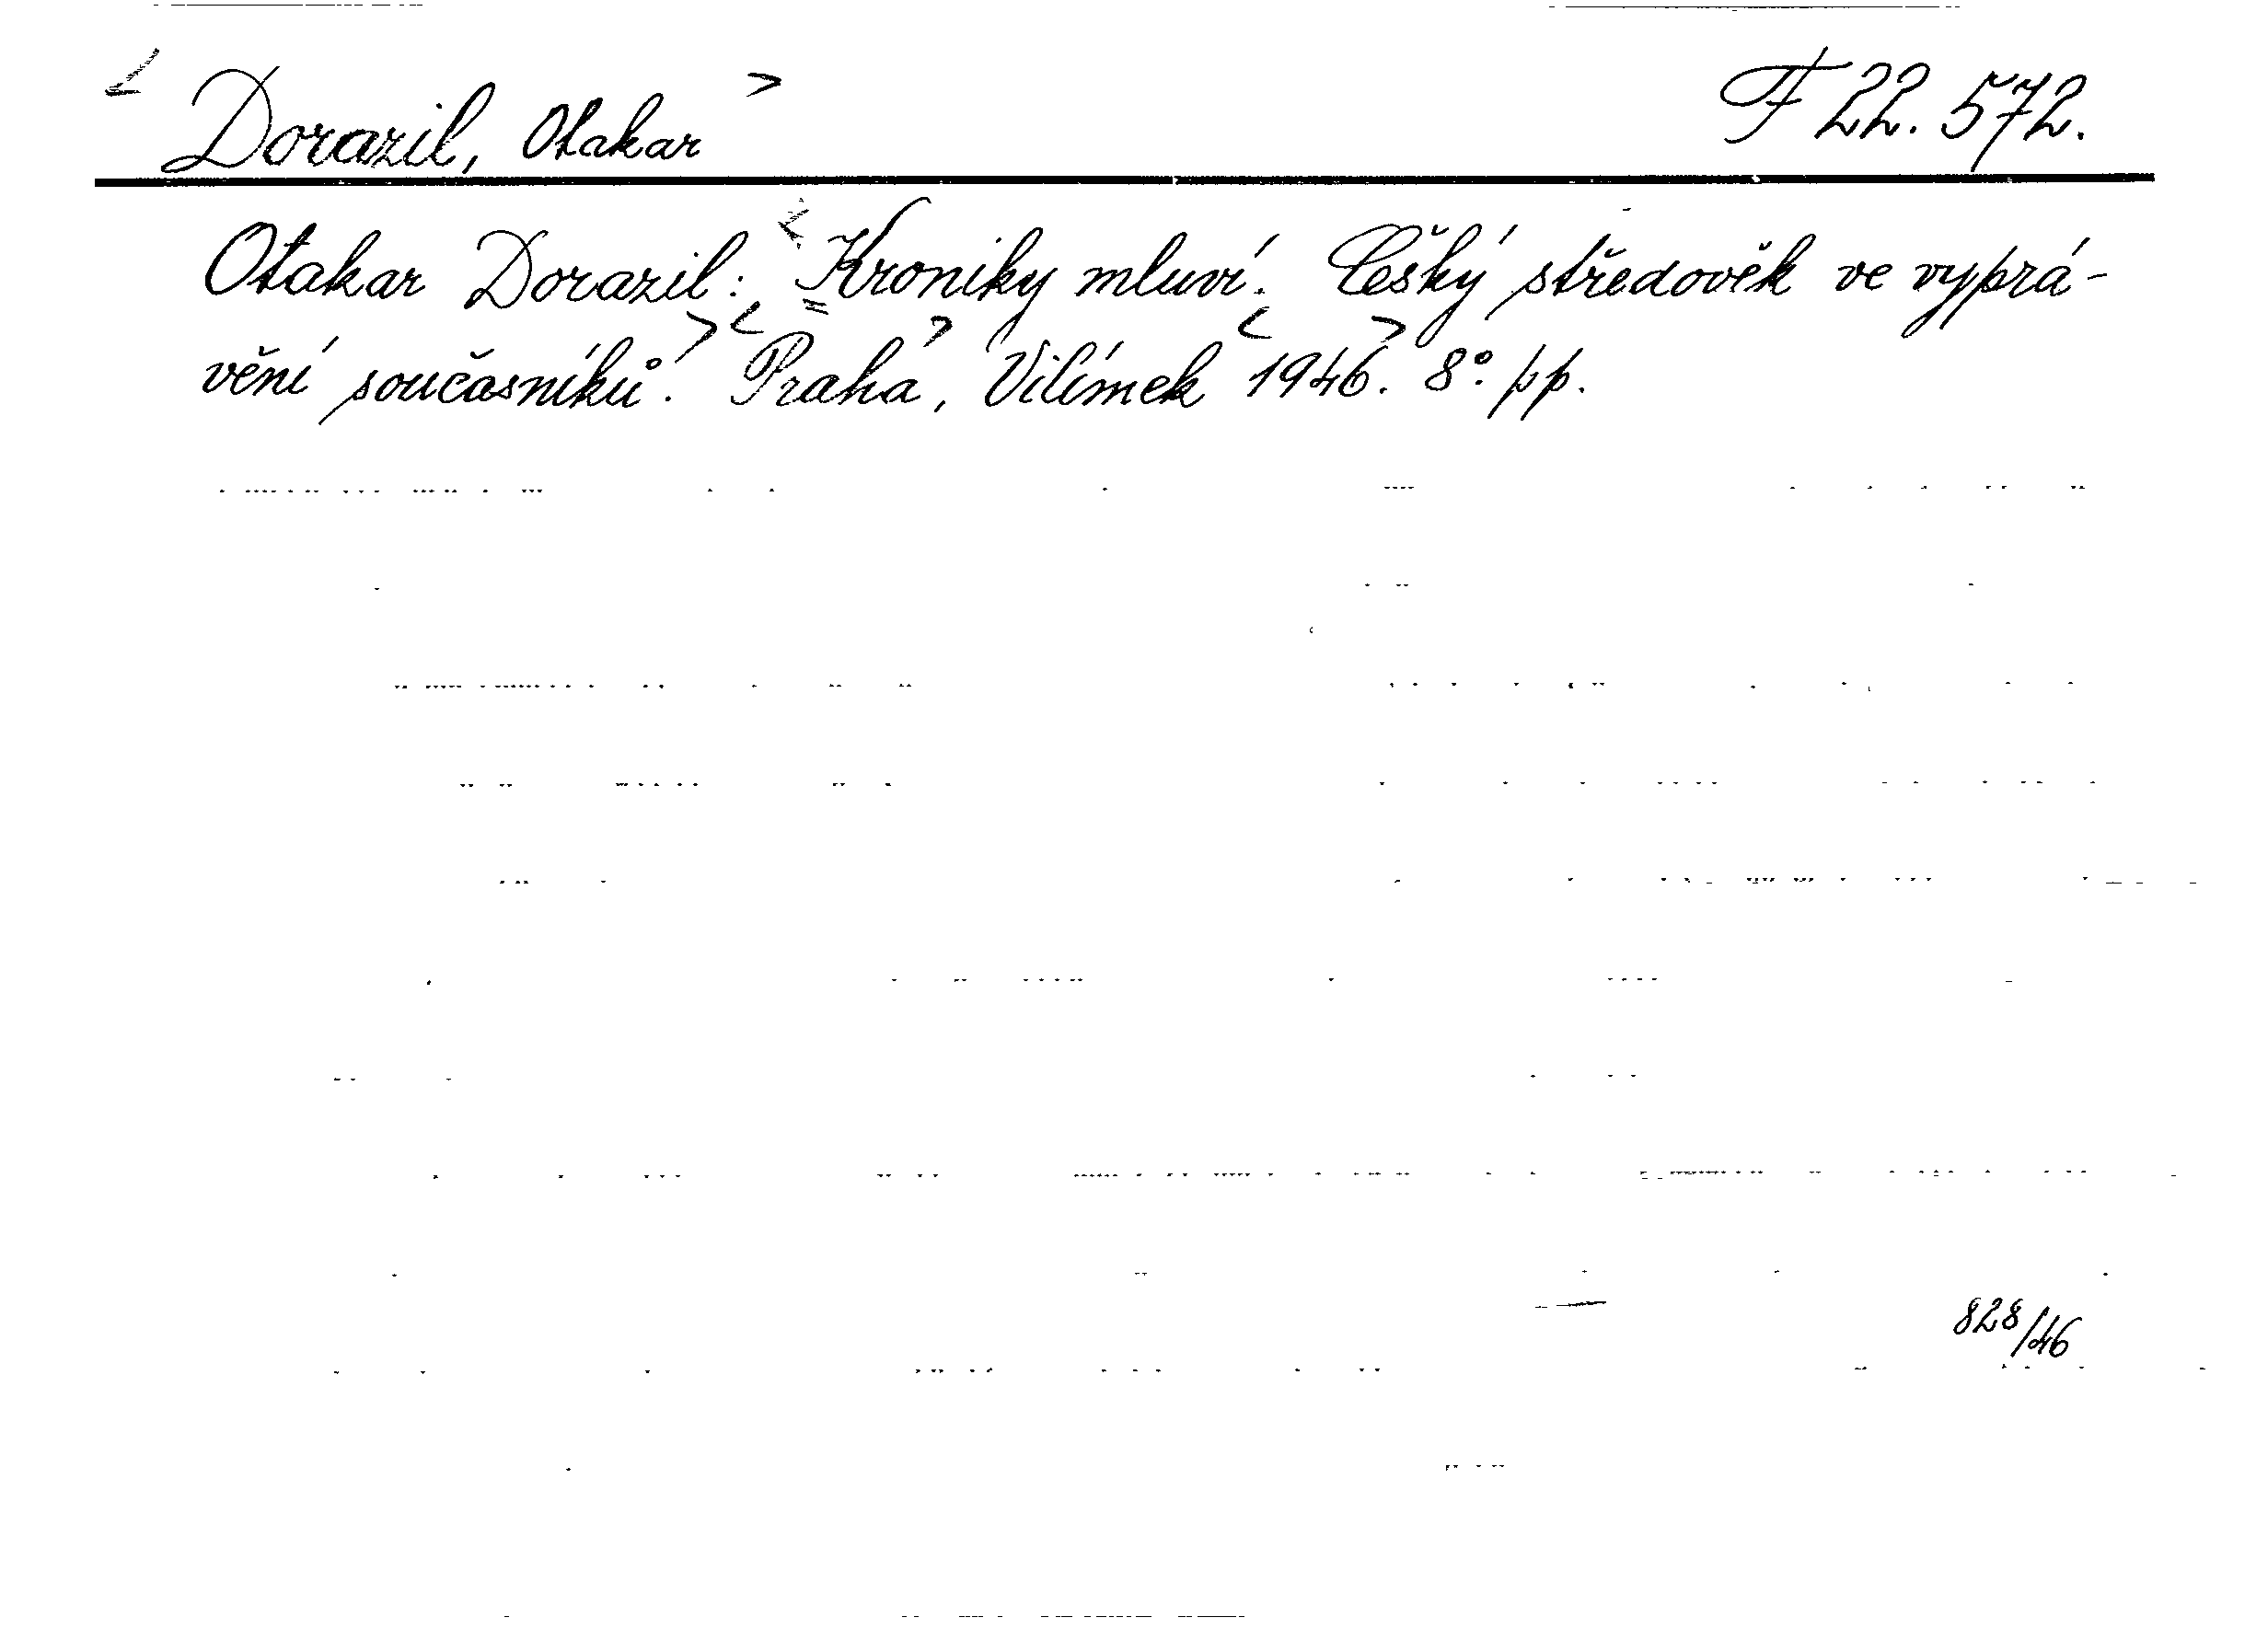 < Dorazil, Otakar > F 22.572.
Otakar Dorazil: < Kroniky mluví. Český středověk ve vyprá-
vění současníků. > < Praha >, Vilímek < 1946 >. 8°. pp.
828/46